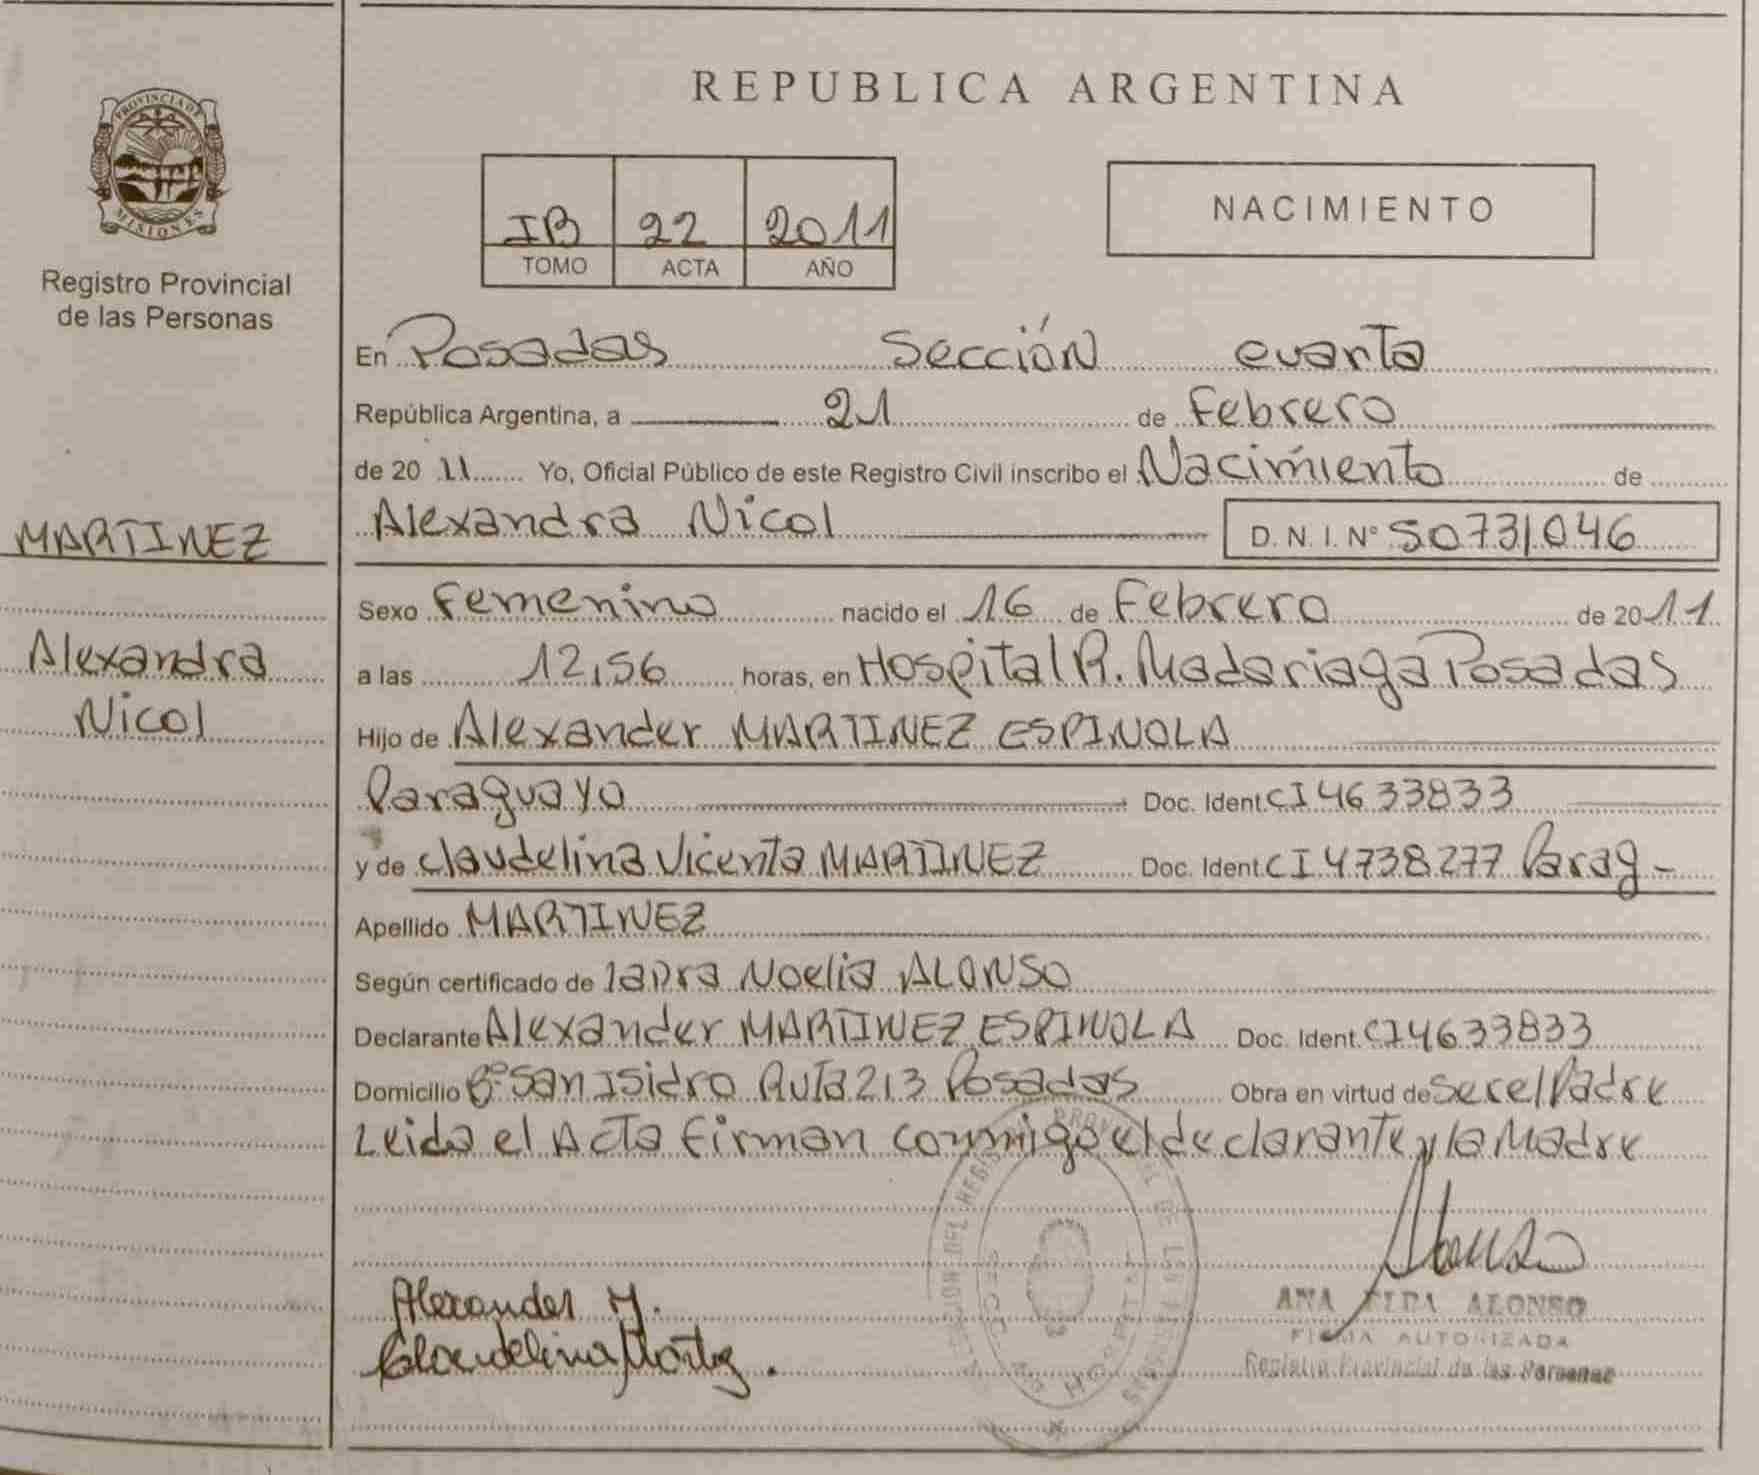 PROVINCIA DE
MISIONES
Registro Provincial
de las Personas
MARTINEZ
Alexandra
Nicol
REPUBLICA ARGENTINA
IB 22 2011
TOMO ACTA AÑO
NACIMIENTO
En Posadas Sección cuarta
República Argentina, a 21 de Febrero
de 2011 Yo, Oficial Público de este Registro Civil inscribo el Nacimiento de
Alexandra Nicol D. N. I. Nº 50731046
Sexo Femenino nacido el 16 de Febrero de 2011
a las 12,56 horas, en Hospital R. Madariaga Posadas
Hijo de Alexander MARTINEZ ESPINOLA
Paraguayo Doc. Ident. CI 4633833
y de Claudelina Vicenta MARTINEZ Doc. Ident. CI 4738277 Parag-
Apellido MARTINEZ
Según certificado de Noelia ALONSO
Declarante Alexander MARTINEZ ESPINOLA Doc. Ident. CI 4633833
Domicilio Bº San Isidro Ruta 213 Posadas Obra en virtud de ser el Padre
Leida el Acta firman conmigo el declarante y la Madre
Alexander M.
Claudelina
ANA ALONSO
FIRMA AUTORIZADA
Registro Provincial de las Personas